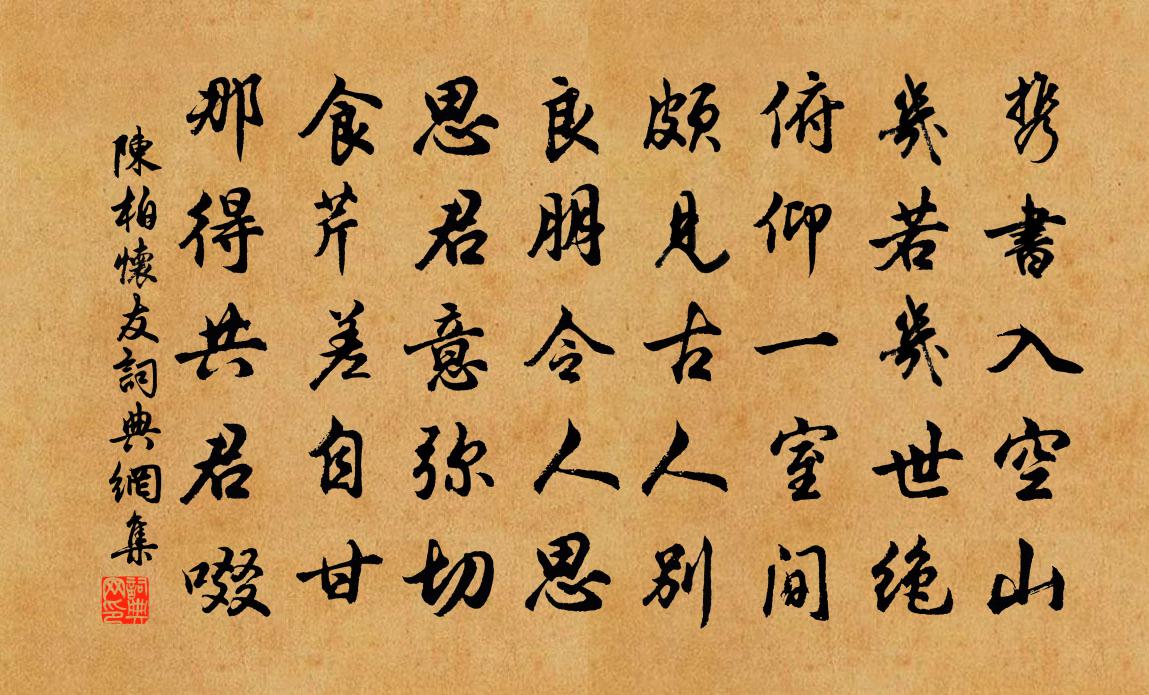 携書入空山
幾若幾世絶
俯仰一室間
頗見古人别
良朋令人思
思君意弥切
食芹差自甘
那得共君啜
陳柏懷友詞典網集
詞典网印